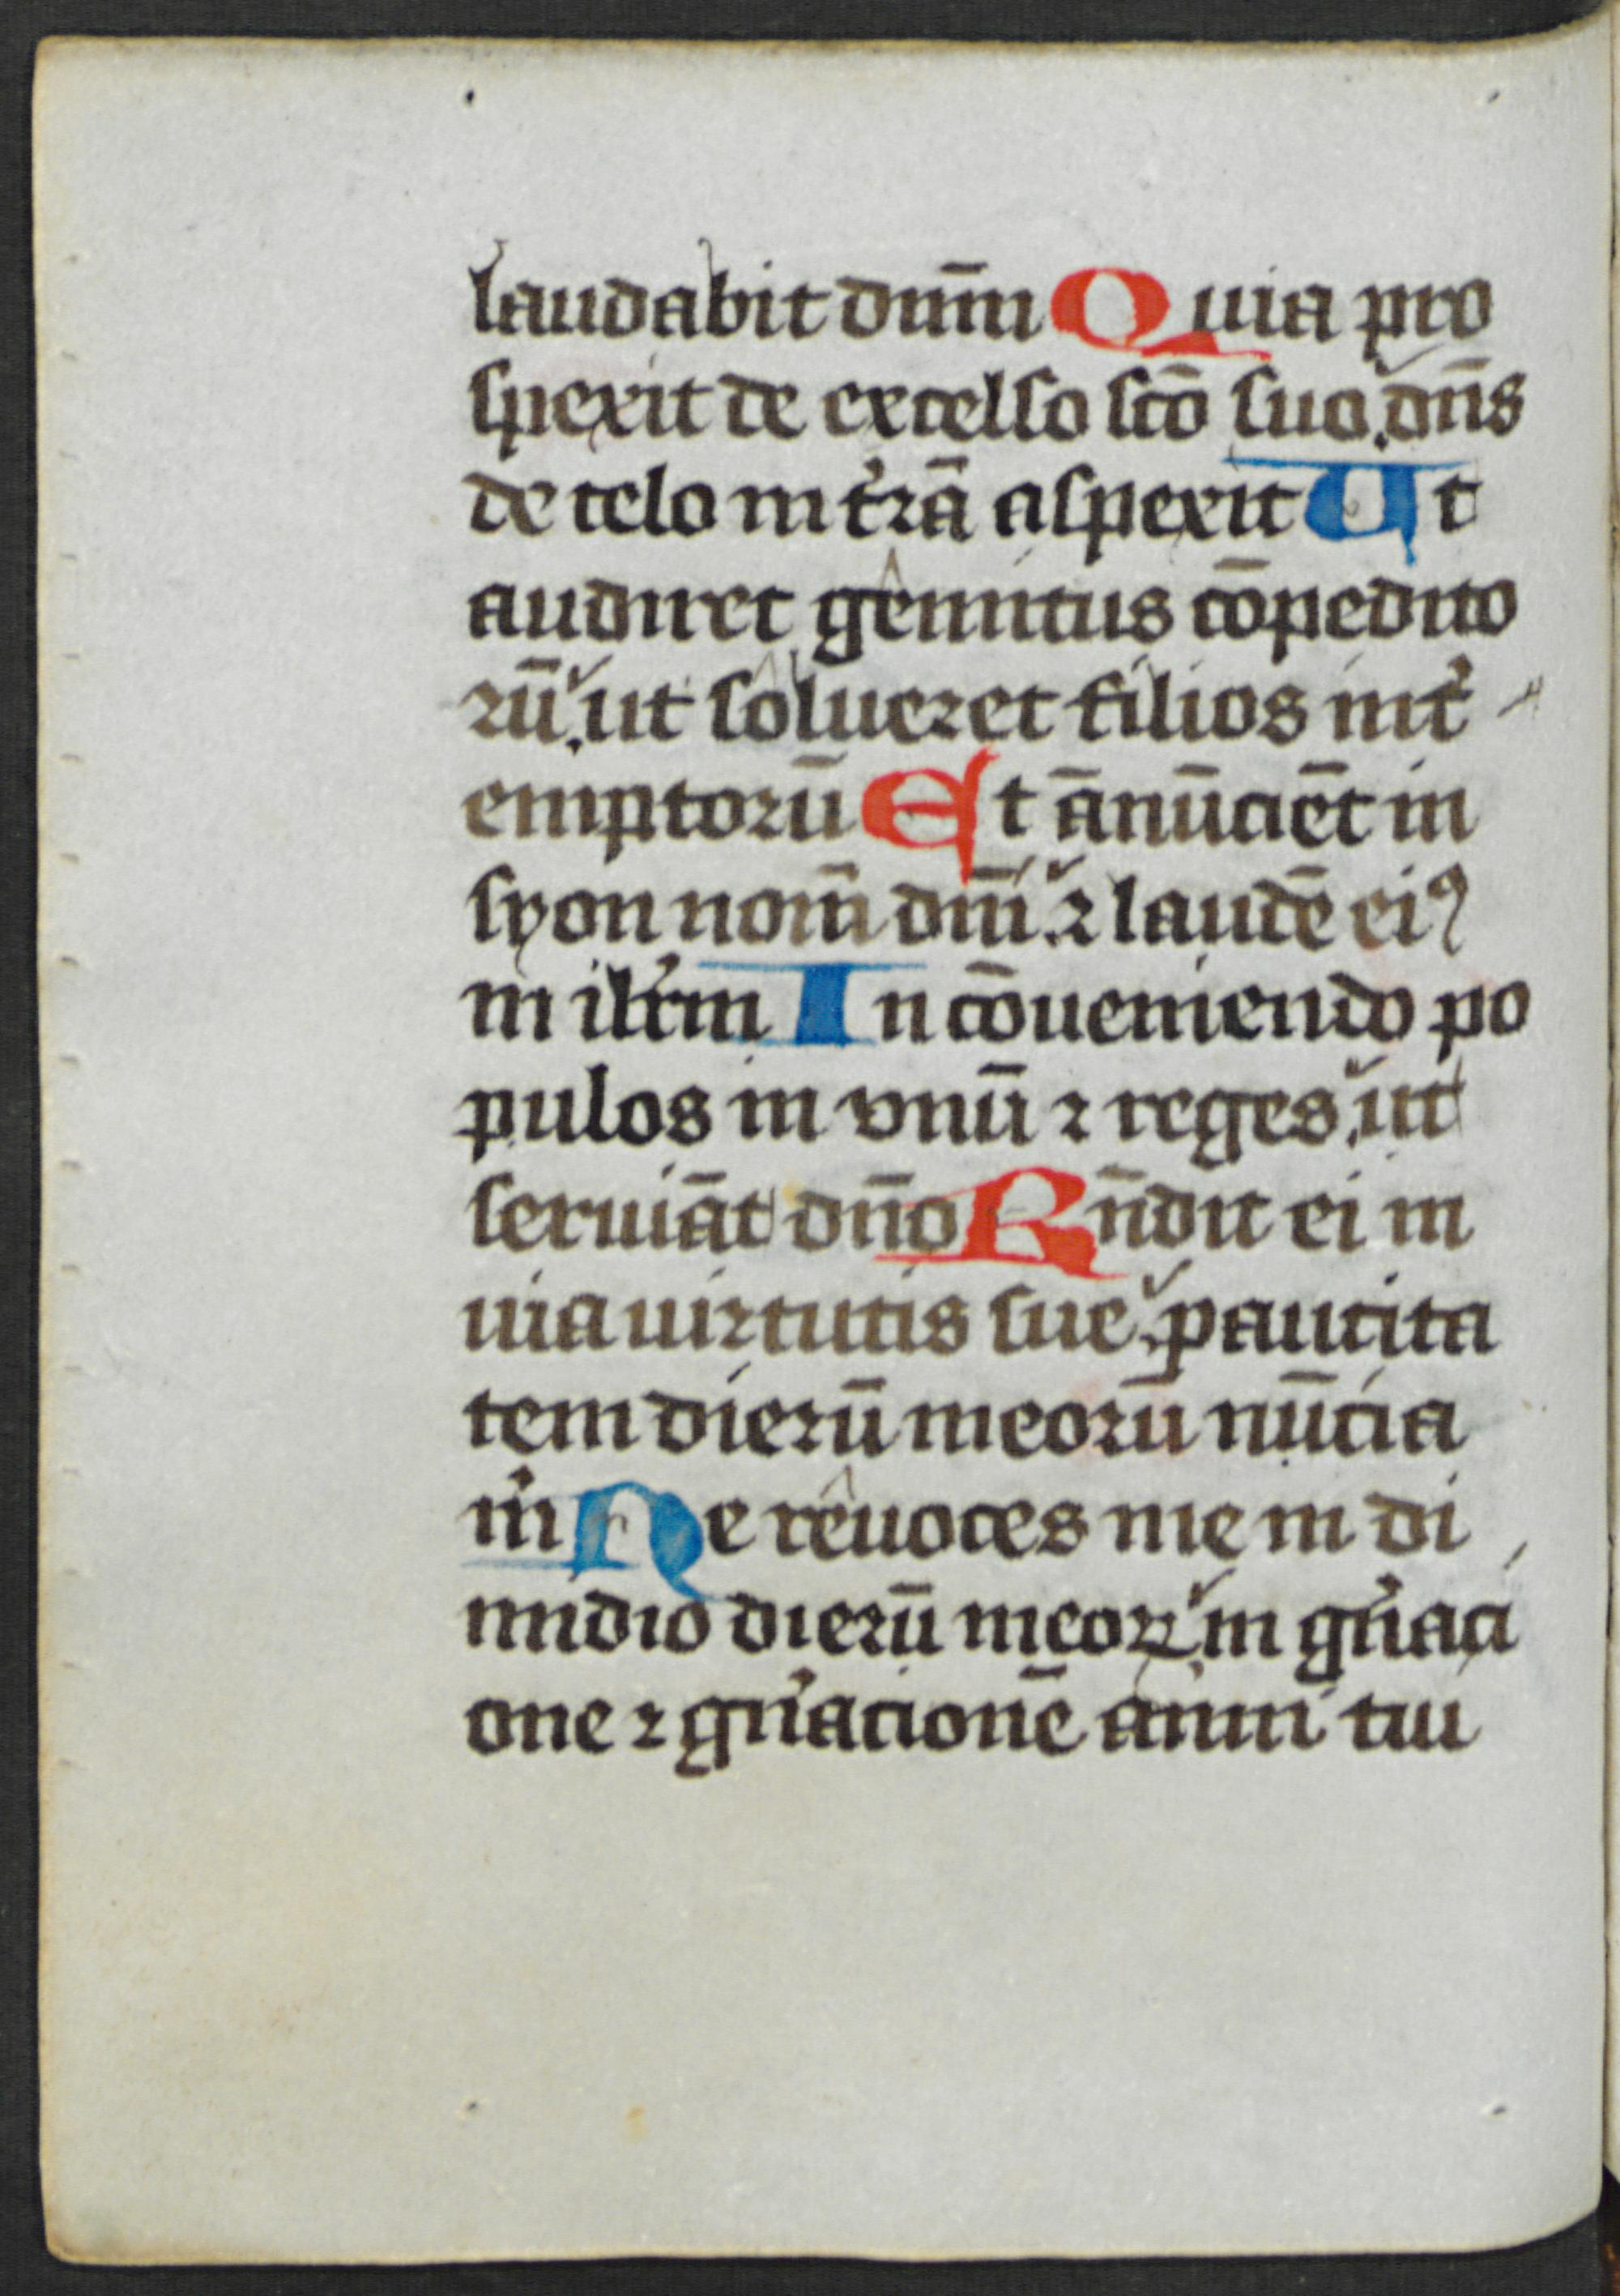 laudabit dnm̄ Quia pro
spexit de excelso sco̅ suo. dn̄s
de celo in t̓rā aspexit Ut
audiret gemitus cōpedito
rū. ut solueret filios int̓
emptorū Et ānūciēt in
syon nom̄ dnī. ⁊ laudē eiꝰ
in ilr̓m In cōueniendo po
pulos in vnū ⁊ reges. ut
seruiāt dn̄o Rn̄dit ei in
uia uirtutis sue. paucita
tem dierū meorū nūcia
m̓ Ne reuoces me in di
midio dierū meoꝝ. in gn̓aci
one ⁊ gn̓acionē anni tui